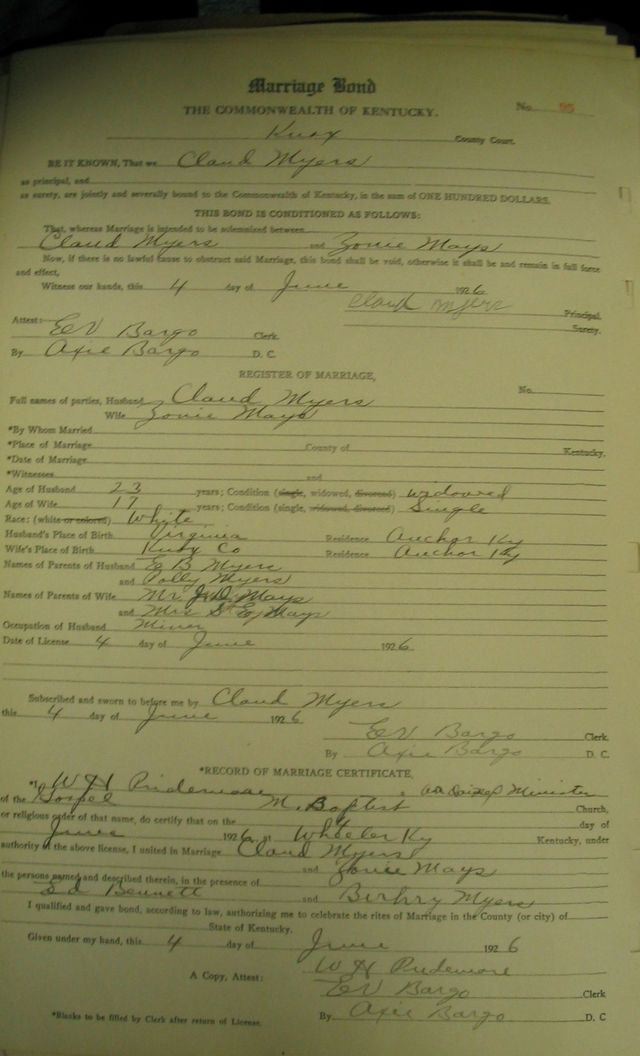 Marriage Bond
THE COMMONWEALTH OF KENTUCKY. No. 95
Knox County Court.
BE IT KNOWN, That we Claud Myers
as principal, and
as surety, are jointly and severally bound to the Commonwealth of Kentucky, in the sum of ONE HUNDRED DOLLARS.
THIS BOND IS CONDITIONED AS FOLLOWS:
That, whereas Marriage is intended to be solemnized between
Claud Myers and Zonie Mays
Now, if there is no lawful cause to obstruct said Marriage, this bond shall be void, otherwise it shall be and remain in full force
and effect,
Witness our hands, this 4 day of June 1926
Claud Myers Principal.
Surety.
Attest:
EV Bargo Clerk.
By Axie Bargo D. C.
REGISTER OF MARRIAGE,
No.
Full names of parties, Husband Claud Myers
Wife Zonie Mays
*By Whom Married
*Place of Marriage County of Kentucky.
*Date of Marriage
*Witnesses and
Age of Husband 23 years; Condition (single, widowed, divorced) widowed
Age of Wife 17 years; Condition (single, widowed, divorced) Single
Race: (white or colored) White
Husband's Place of Birth Virginia Residence Anchor Ky
Wife's Place of Birth Knox Co Residence Anchor Ky
Names of Parents of Husband E B Myers
and Polly Myers
Names of Parents of Wife Mr J.D. Mays
and Mrs S E Mays
Occupation of Husband Miner
Date of License 4 day of June 1926
Subscribed and sworn to before me by Claud Myers
this 4 day of June 1926
EV Bargo Clerk.
By Axie Bargo D. C.
*RECORD OF MARRIAGE CERTIFICATE,
*I, W H Pridemore a Minister
of the Gospel M. Baptist Church,
or religious order of that name, do certify that on the 4 day of
June 1926, at Wheeler Ky Kentucky, under
authority of the above license, I united in Marriage Claud Myers
and Zonie Mays
the persons named and described therein, in the presence of
Ed Bennett and Myers
I qualified and gave bond, according to law, authorizing me to celebrate the rites of Marriage in the County (or city) of
State of Kentucky.
Given under my hand, this 4 day of June 1926
W H Pridemore
A Copy, Attest: EV Bargo Clerk
*Blanks to be filled by Clerk after return of License. By Axie Bargo D. C